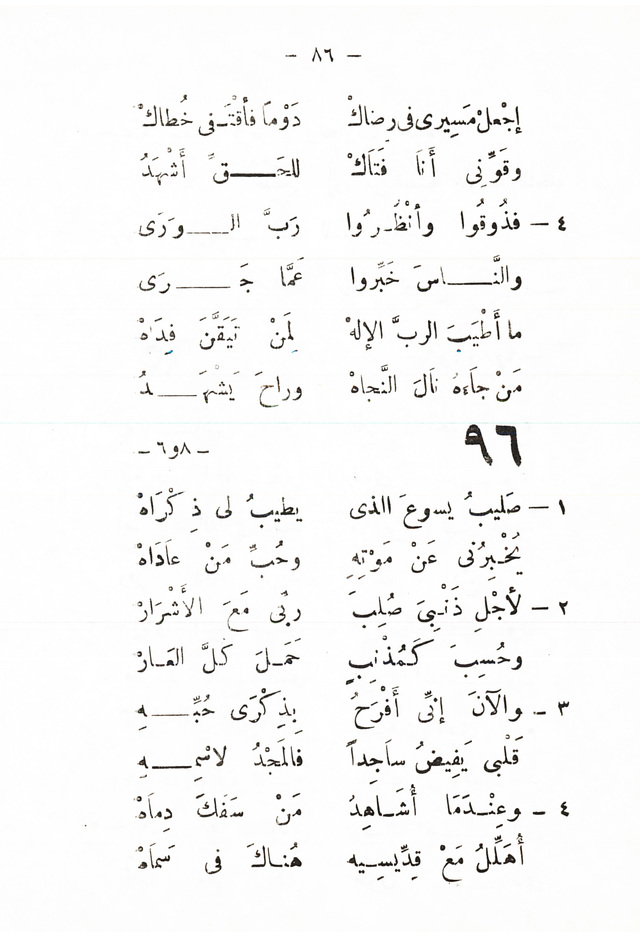 – ٨٦ –
إجْعلْ مَسِيرى فى رضاكْ دَوْماً فأقْتَـفى خُطاكْ
وقَوِّنِى أَنا فَتَاكْ للحَـــقِّ أَشْهَدُ
٤ – فذُوقُوا وأنْظُـرُوا رَبَّ الــوَرَى
والنَّـــاسَ خَبِّروا عَمَّا جَـــرَى
ما أَطْيَبَ الربَّ الإلهْ لِمَنْ تَيَقَّنَ فِدَاهْ
مَنْ جاءهُ نالَ النَّجاهْ وراحَ يَشْهَـــدُ
٩٦
– ٨و٦ –
١ – صَليبُ يسوعَ االذى يطيبُ لى ذِكْرَاهْ
يُخْـبِرُنى عَنْ مَوْتِهِ وحُبِّ مَنْ عاَدَاهْ
٢ – لأجْلِ ذَنْـبِىَ صُلِبَ ربِّى مَعَ الأَشْرَارْ
وحُسِبَ كَمُذْنِبٍ حَمَـلَ كلَّ العَـارْ
٣ – والآنَ إنِّى أَفْرَحُ بِذِكْرَى حُبِّـــهِ
قَلْبى يَفِيضُ ساَجِداً فالمَجْدُ لاسْمِـــهِ
٤ – وعِنْـدَمَا أُشَـاهِدُ مَنْ سَفَكَ دِماَهْ
أُهَلِّلُ مَعْ قِدِّيسِـيه هُنـاكَ فى سَماَهْ